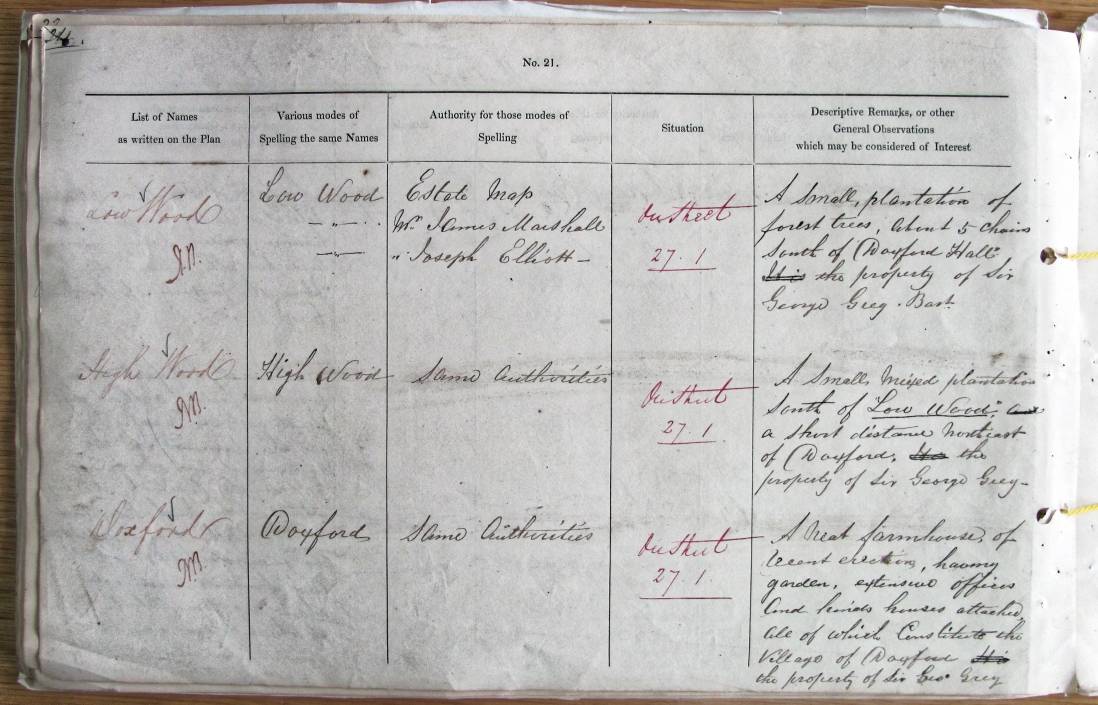 No. 21.
List of Names
as written on the Plan
Various modes of
Spelling the same Names
Authority for those modes of
Spelling
Situation
Descriptive Remarks, or other
General Observations
which may be considered of Interest
Low Wood
Low Wood
Estate Map
Mr. James Marshall
" Joseph Elliott
27.1
A Small plantation of
forest trees, about 5 chains
South of Doxford Hall
It is the property of Sir
George Grey. Bart.
High Wood
High Wood
Same Authorities
27.1
A Small Mixed plantation
South of "Low Wood",
a short distance Northeast
of Doxford, the
property of Sir George Grey
Doxford
Doxford
Same Authorities
27.1
A Neat farmhouse, of
recent erection, having
garden, extensive offices
and hinds houses attached,
All of which Constitute the
Village of Doxford It is
the property of Sir Geo. Grey